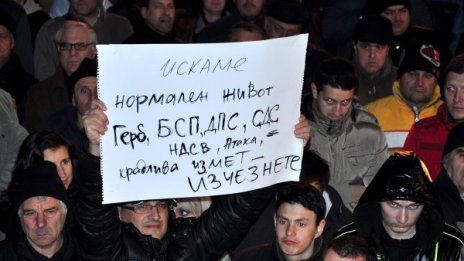 искаме
нормален живот
Герб, БСП, ДПС, СДС
НДСВ, Атака,
крадлива измет –
ИЗЧЕЗНЕТЕ